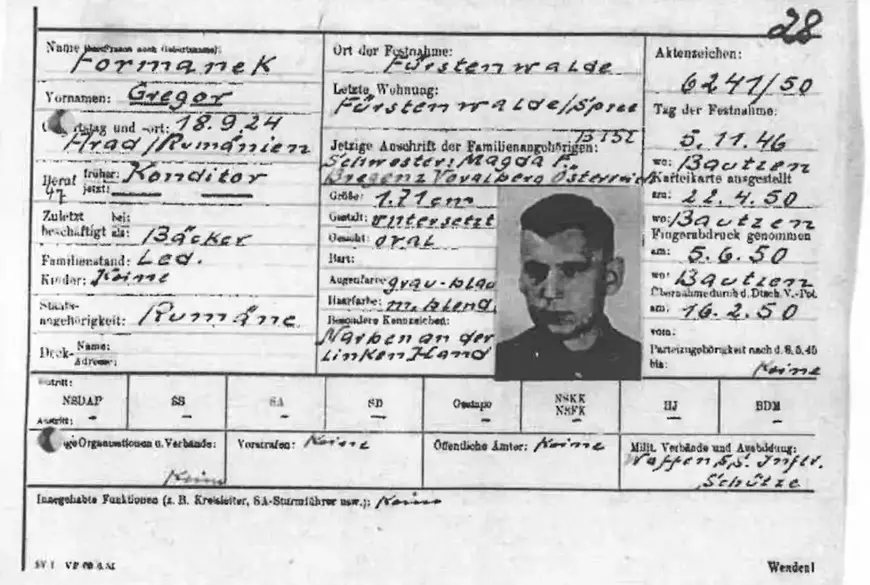 28
Name (bei Frauen auch Geburtsname):
Formanek
Vornamen: Gregor
Geburtstag und -ort: 18.9.24
Arad/Rumänien
Beruf früher: Konditor
jetzt:
Zuletzt bei:
beschäftigt als: Bäcker
Familienstand: Led.
Kinder: Keine
Staats-
angehörigkeit: Rumäne
Deck- Name:
Adresse:
Ort der Festnahme:
Fürstenwalde
Letzte Wohnung:
Fürstenwalde/Spree
Jetzige Anschrift der Familienangehörigen:
Schwester: Magda F.
Bregenz Voralberg Österreich
Größe: 1.71 cm
Gestalt: untersetzt
Gesicht: oval
Bart:
Augenfarbe: grau-blau
Haarfarbe: m. blond
Besondere Kennzeichen:
Narben an der
linken Hand
Aktenzeichen:
6241/50
Tag der Festnahme:
5.11.46
wo: Bautzen
Karteikarte ausgestellt
am: 22.4.50
wo: Bautzen
Fingerabdruck genommen
am: 5.6.50
wo: Bautzen
Übernahme durch d. Dtsch. V.-Pol.
am: 16.2.50
vom:
Parteizugehörigkeit nach d. 8.5.45
bis: Keine
Eintritt:
NSDAP SS SA SD Gestapo NSKK NSFK HJ BDM
Austritt: – – – – – – – –
Organisationen u. Verbände:
Keine
Vorstrafen: Keine
Öffentliche Ämter: Keine
Milit. Verbände und Ausbildung:
Waffen SS. Inftr.
Schütze
Innegehabte Funktionen (z. B. Kreisleiter, SA-Sturmführer usw.): Keine
Wenden!